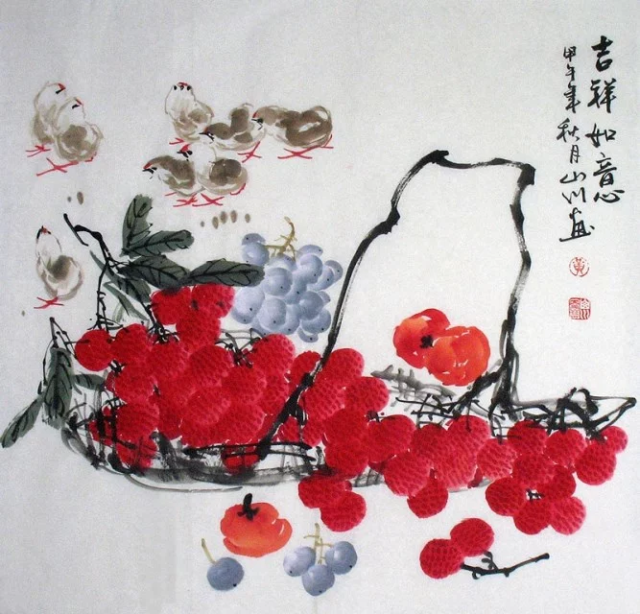 吉祥如意
甲午年秋月山川画